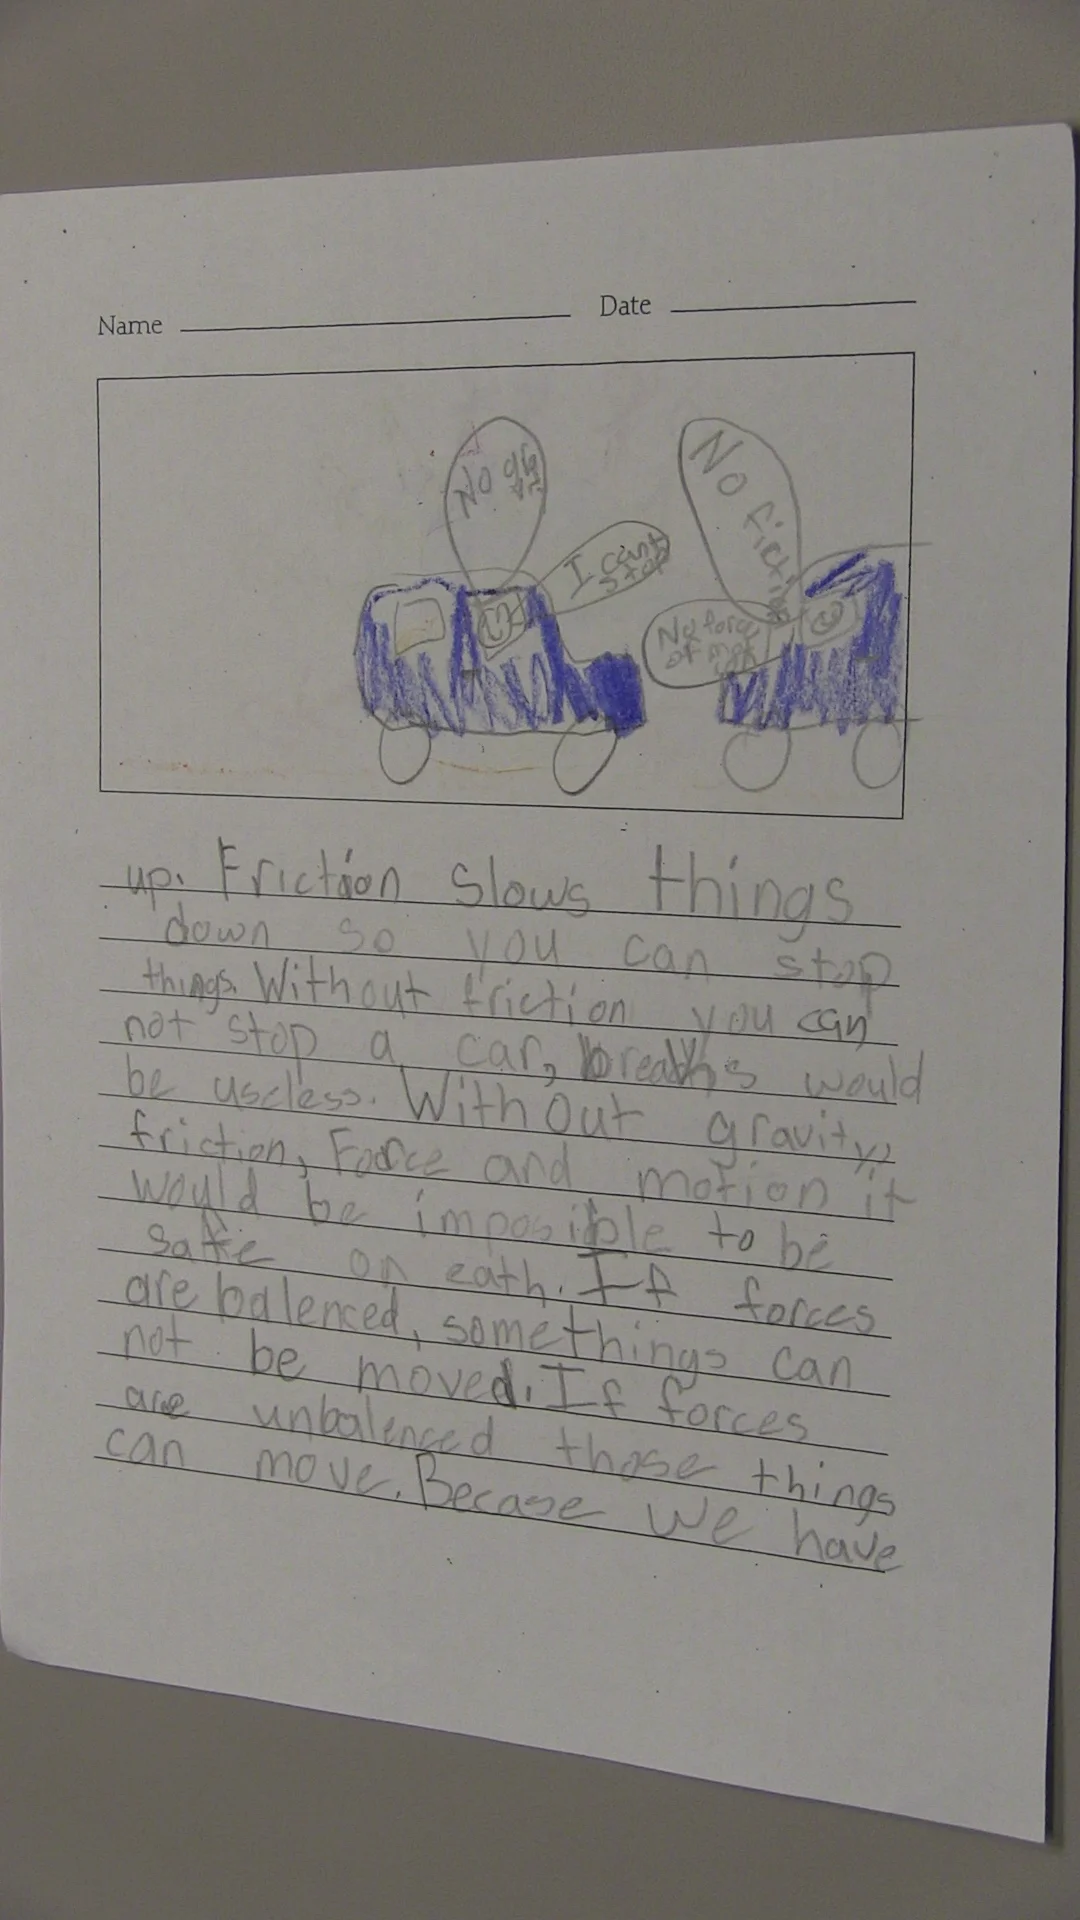 Name
Date
No
I can't
stop
No fiction
No force
of motion
up. Friction slows things
down so you can stop
things. Without friction you can
not stop a car, breaths would
be useless. Without gravity,
friction, Foorce and motion it
would be imposible to be
safe on eath. If forces
are balenced, somethings can
not be moved. If forces
are unbalenced those things
can move. Becase we have